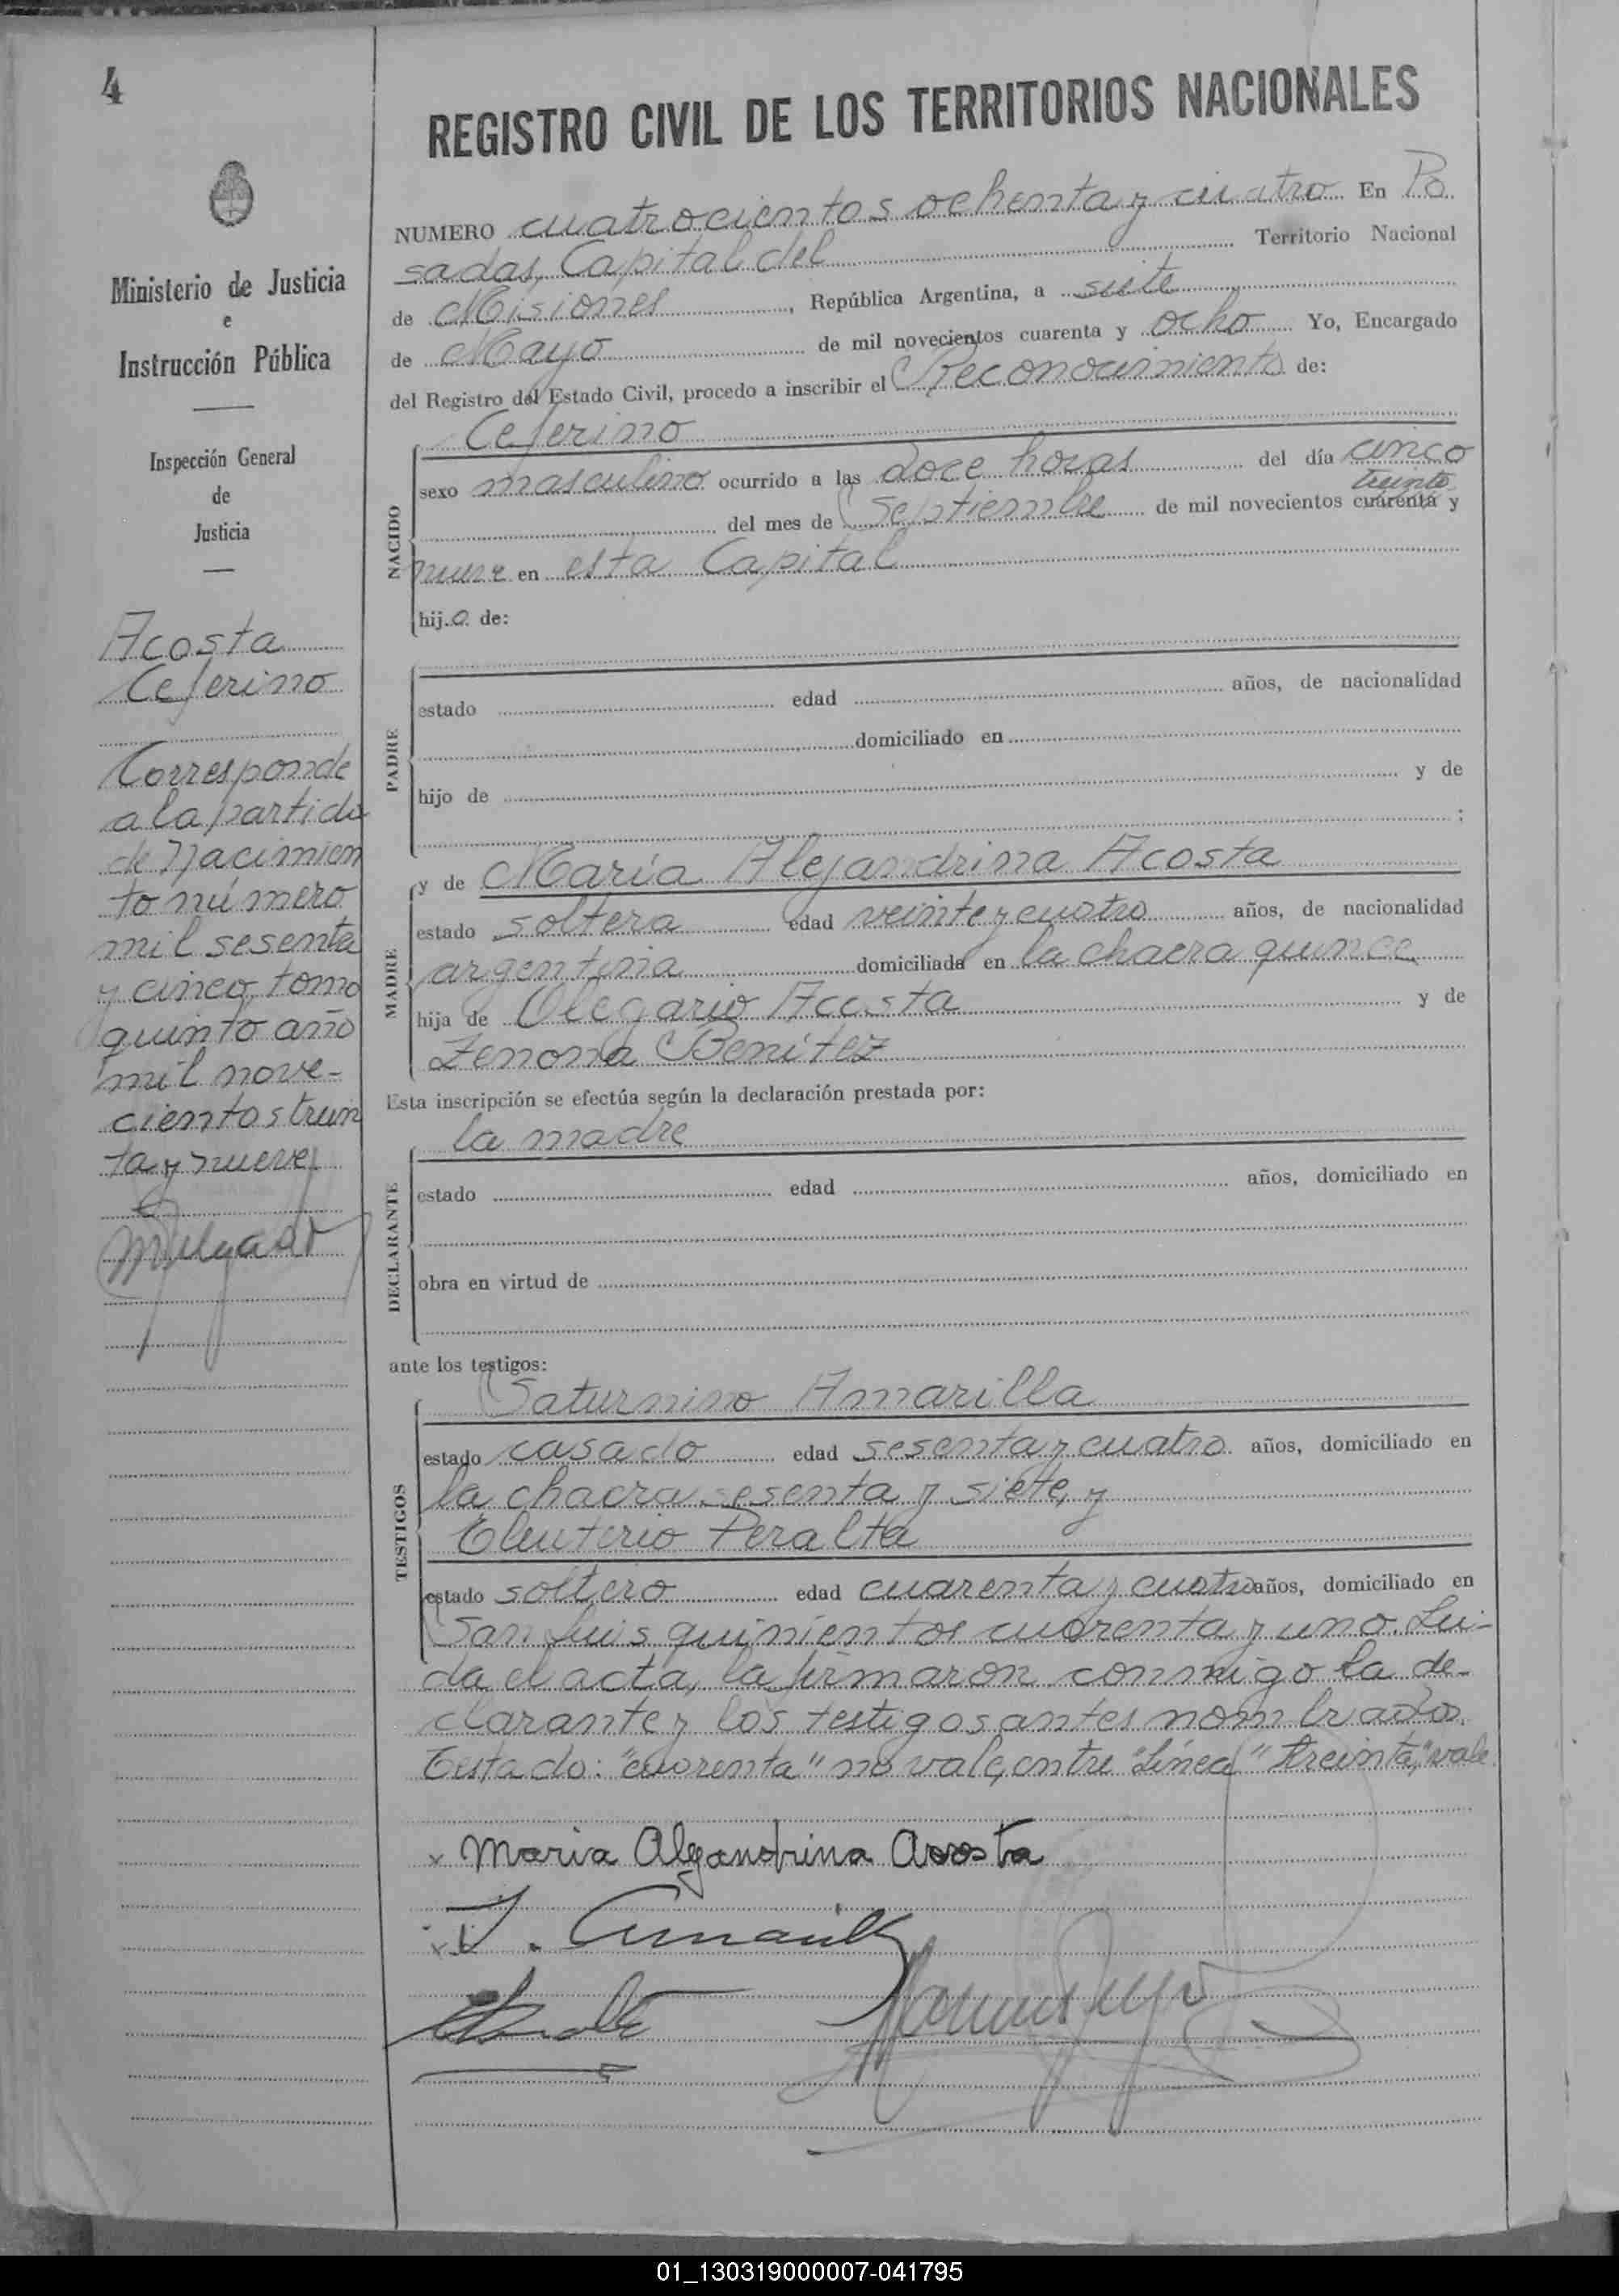 4
Ministerio de Justicia
e
Instrucción Pública
Inspección General
de
Justicia
Acosta
Ceferino
Corresponde
a la partida
de Nacimien
to número
mil sesenta
y cinco, tomo
quinto año
mil nove-
cientos trein
ta y nueve
REGISTRO CIVIL DE LOS TERRITORIOS NACIONALES
NUMERO cuatrocientos ochenta y cuatro En Po
sadas, Capital del Territorio Nacional
de Misiones, República Argentina, a siete
de Mayo de mil novecientos cuarenta y ocho Yo, Encargado
del Registro del Estado Civil, procedo a inscribir el Reconocimiento de:
Ceferino
NACIDO
sexo masculino ocurrido a las doce horas del día cinco
treinta
del mes de Septiembre de mil novecientos cuarenta y
nueve en esta Capital
hijo de:
PADRE
estado edad años, de nacionalidad
domiciliado en
hijo de y de
;
MADRE
y de María Alejandrina Acosta
estado soltera edad veinte y cuatro años, de nacionalidad
argentina domiciliada en la chacra quince
hija de Olegario Acosta y de
Zenona Benítez
Esta inscripción se efectúa según la declaración prestada por:
la madre
DECLARANTE
estado edad años, domiciliado en
obra en virtud de
ante los testigos:
TESTIGOS
Saturnino Amarilla
estado casado edad sesenta y cuatro años, domiciliado en
la chacra sesenta y siete, y
Eleuterio Peralta
estado soltero edad cuarenta y cuatro años, domiciliado en
San Luis quinientos cuarenta y uno. Lei-
da el acta, la firmaron conmigo la de-
clarante y los testigos antes nombrados.
Testado: "cuarenta" no vale, entre "línea" "treinta," vale.
x Maria Alejandrina Acosta
01_130319000007-041795